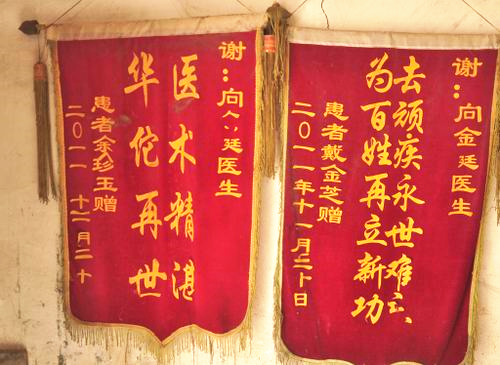 谢：向金廷医生
医术精湛
华佗再世
患者余珍玉赠
二〇一一 十二月二十
谢：向金廷医生
去顽疾永世难忘
为百姓再立新功
患者戴金芝赠
二〇一一年十一月二十日